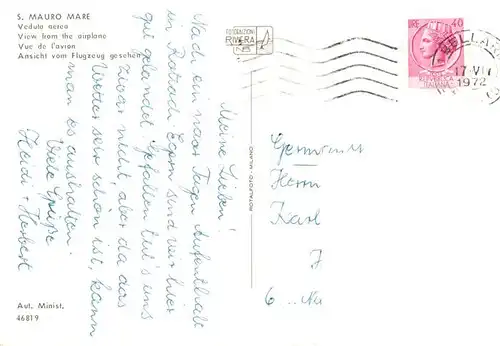 S. MAURO MARE
Veduta aerea
View from the airplane
Vue de l'avion
Ansicht vom Flugzeug gesehen
Meine Lieben!
Nach ein paar Tagen Aufenthalt
in sind wir hier
gut gelandet. Gefallen tut's uns
zwar nicht, aber da das
Wetter sehr schön ist, kann
man es aushalten.
Viele Grüße
Heidi + Herbert
Aut. Minist.
46819
ROTALFOTO - MILANO
RIVIERA
LIRE 40
REPVBBLICA
ITALIANA
17-VII
1972
Germania
Herrn
Karl
J
6 ...